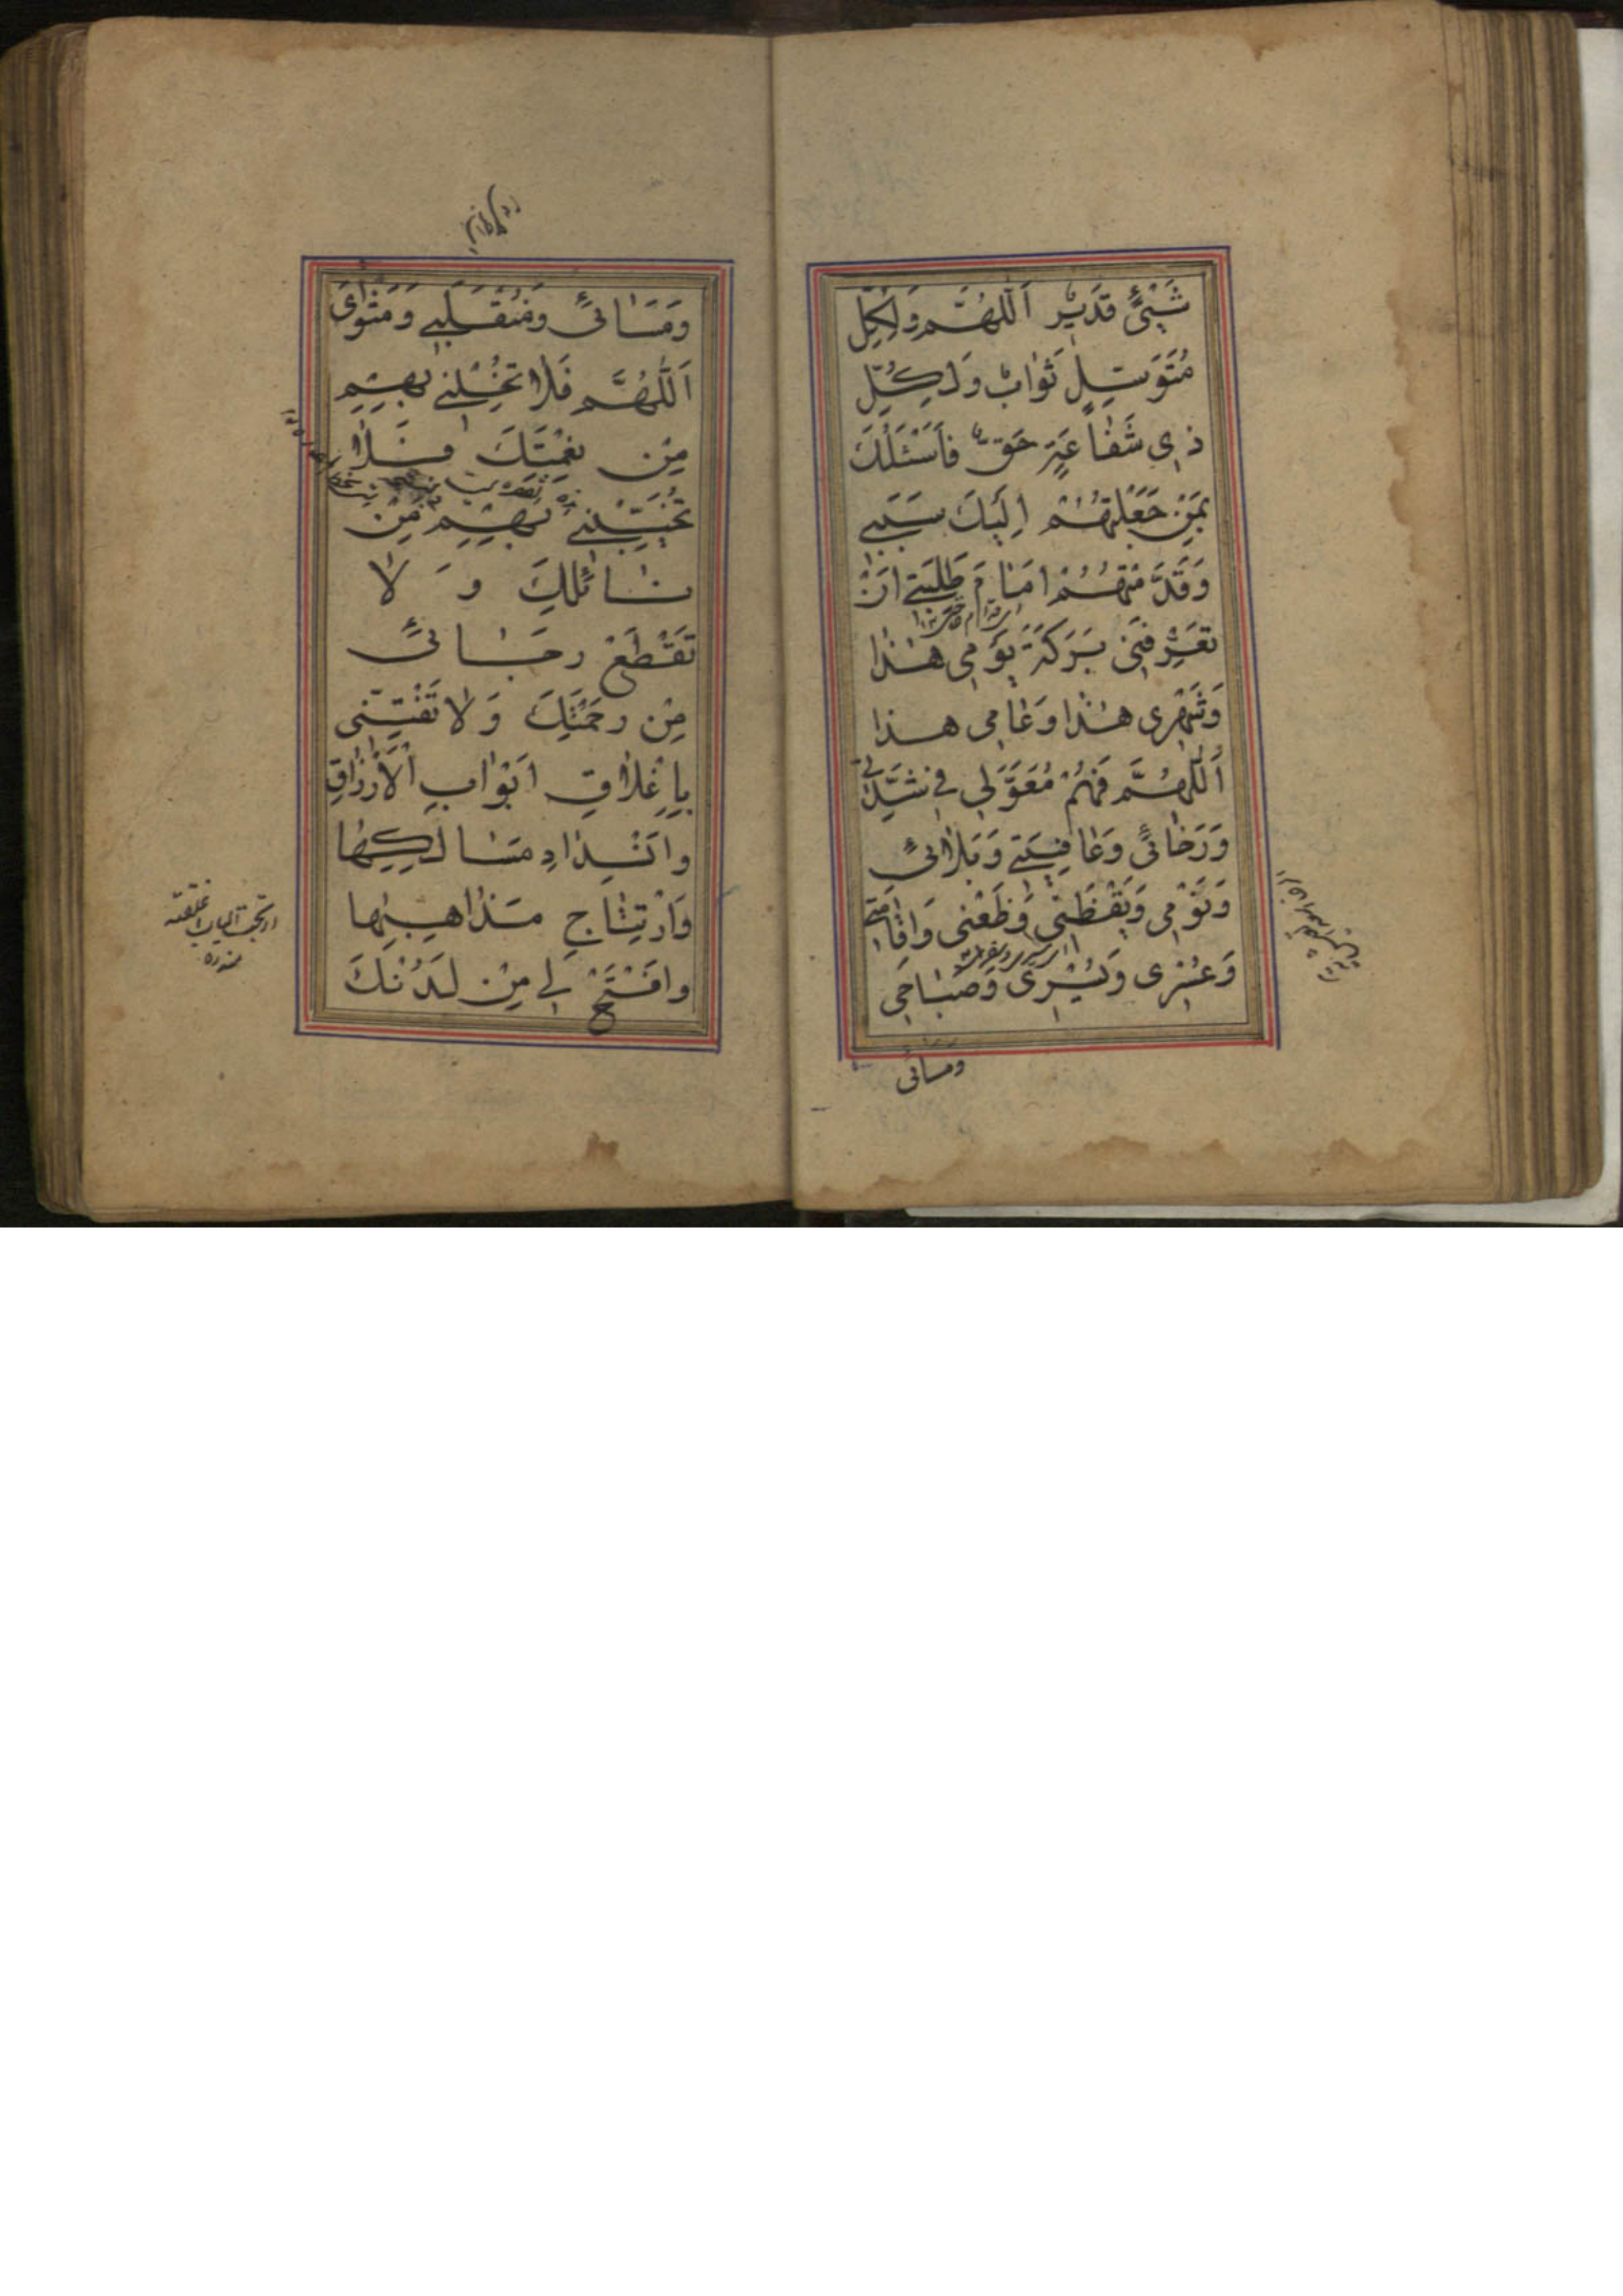 شَيْئٍ قَدَيْرٌ اَللّٰهُمَّ وَلِكُلِّ
مُتَوَسِّلٍ ثَوٰابٌ وَلِكُلِّ
ذِي شَفٰاعَةٍ حَقٌّ فَاَسْئَلُكَ
بِمَنْ جَعَلْتَهُمْ اِلَيْكَ سَبَبِي
وَقَدَّمْتَهُمْ اَمٰامَ طَلِبَتِي اَنْ
تُعَرِّفَنِي بَرَكَةَ يَوْمِي هٰذٰا
وَشَهْرِي هٰذٰا وَعٰامِي هٰذا
اَللّٰهُمَّ فَهُمْ مُعَوَّلِي فِي شِدَّتِي
وَرَخٰائِي وَعٰافِيَتِي وَبَلٰائِي
وَنَوْمِي وَيَقْظَتِي وَظَعْنِي وَاِقٰامَتِي
وَعُسْرِي وَيُسْرِي وَصَبٰاحِي
ومسائی
وَمَسٰائِي وَمُنْقَلَبِي وَمَثْوٰايَ
اَللّٰهُمَّ فَلا تُخْلِنِي بِهِمْ
مِنْ نِعْمَتِكَ وَلٰا
تُخَيِّبْنِي بِهِمْ مِنْ
نٰائِلِكَ وَ لا
تَقْطَعْ رَجٰائِي
مِنْ رَحْمَتِكَ وَلا تَفْتِنِّي
بِاِغْلٰاقِ اَبْوٰابِ الْاَرْزٰاقِ
وَانْسِدٰادِ مَسٰالِكِهٰا
وَارْتِتٰاجِ مَذٰاهِبِهٰا
وَافْتَحْ لِي مِنْ لَدُنْكَ